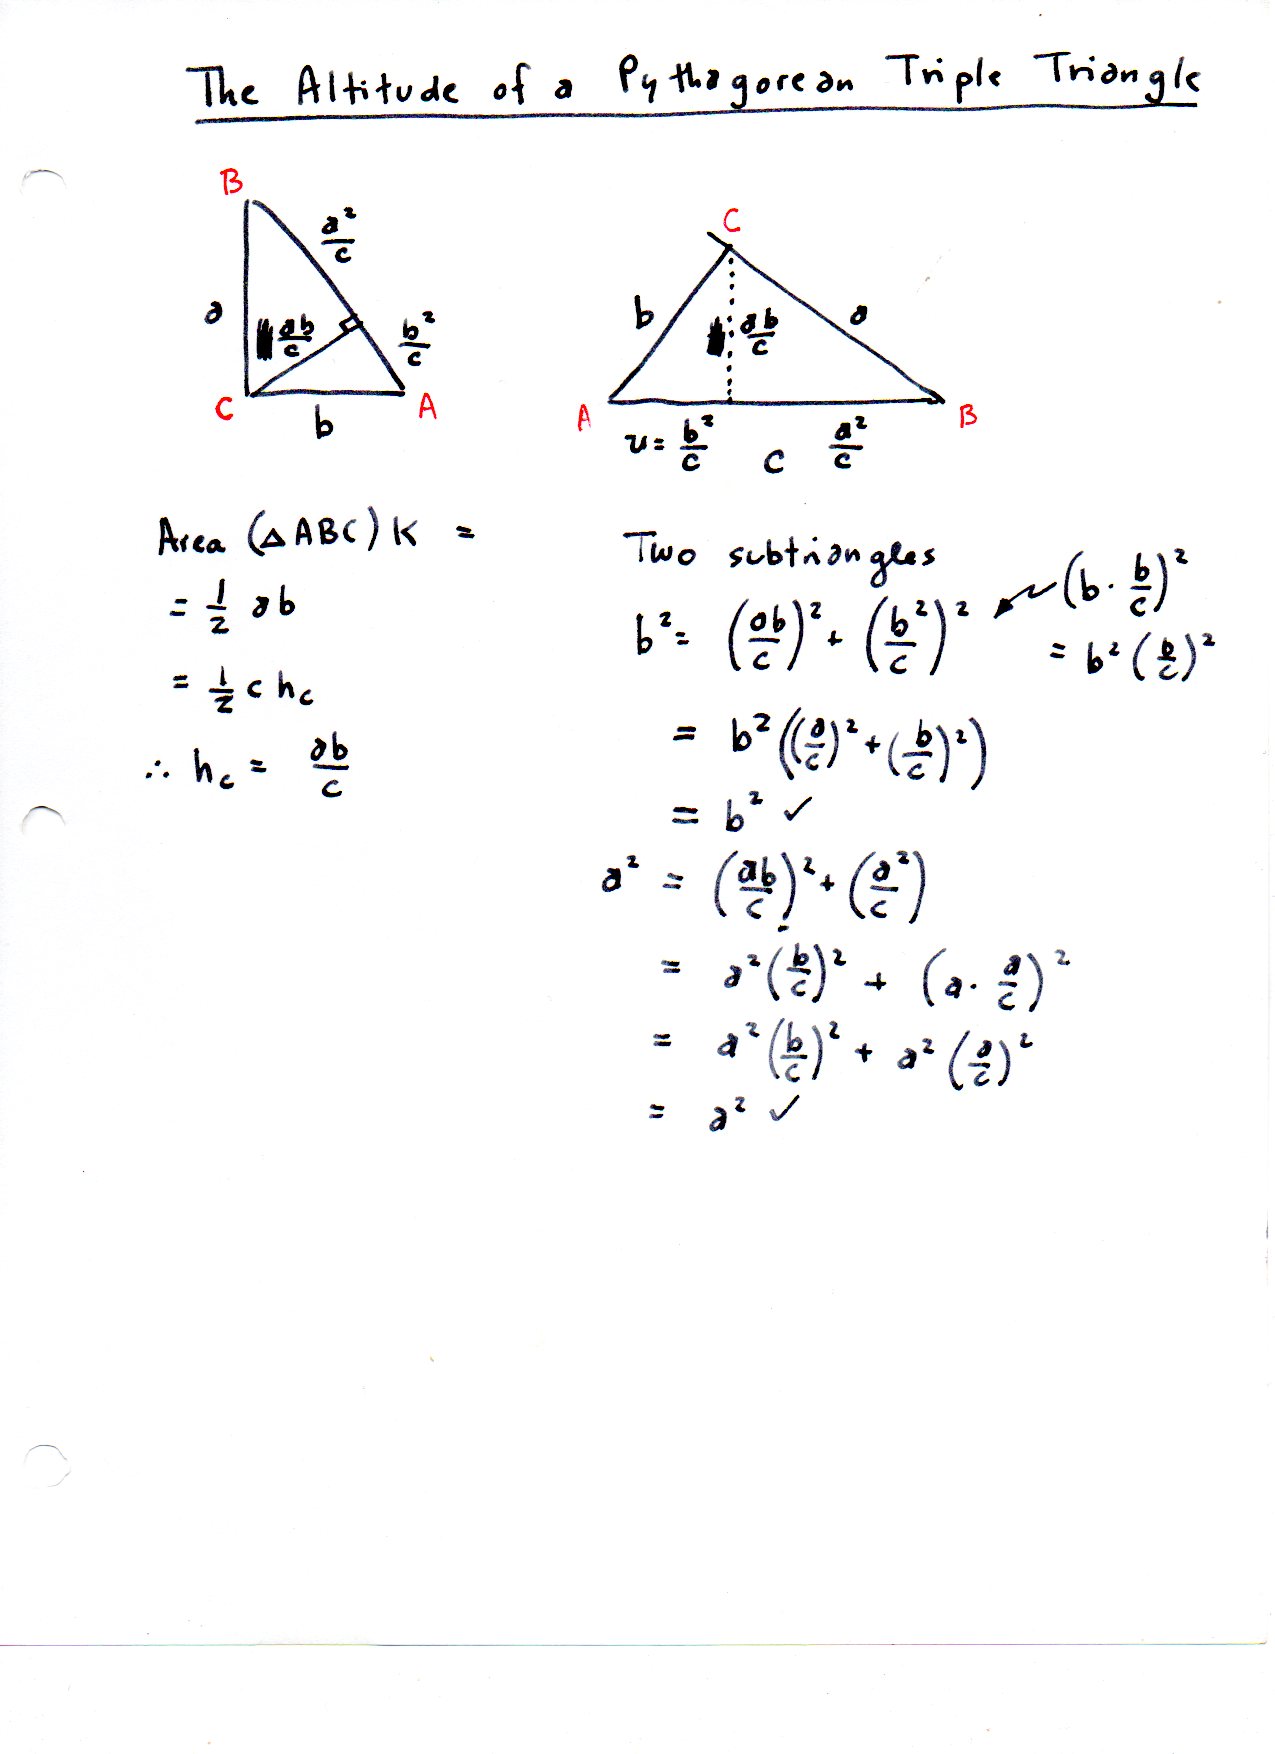 The Altitude of a Pythagorean Triple Triangle
B
a²/c
a
ab/c
b²/c
C
A
b
C
b
ab/c
a
A
B
u = b²/c
c
a²/c
Area (△ABC) K =
= 1/2 ab
= 1/2 c h_c
∴ h_c = ab/c
Two subtriangles
b² = (ab/c)² + (b²/c)²
(b · b/c)²
= b² (b/c)²
= b² ((a/c)² + (b/c)²)
= b² ✓
a² = (ab/c)² + (a²/c)
= a² (b/c)² + (a · a/c)²
= a² (b/c)² + a² (a/c)²
= a² ✓